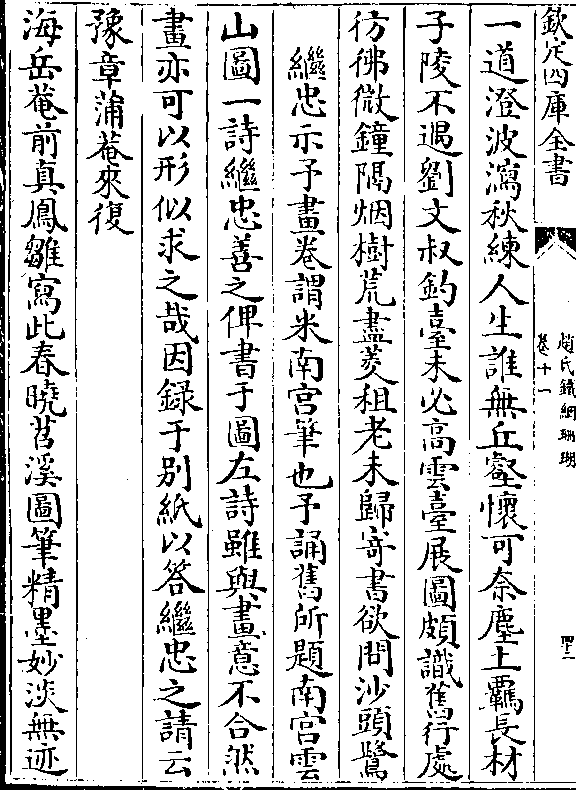 欽定四庫全書
趙氏鐵網珊瑚
卷十一
四十二
一道澄波瀉秋練人生誰無丘壑懷可奈塵土羈長材
子陵不遇劉文叔釣臺未必高雲臺展圖頗識舊行處
彷彿微鐘隔烟樹荒盡菱租老未歸寄書欲問沙頭鷺
繼忠示予畫卷謂米南宮筆也予誦舊所題南宮雲
山圖一詩繼忠善之俾書于圖左詩雖與畫意不合然
畫亦可以形似求之哉因録于別紙以答繼忠之請云
豫章蒲菴來復
海岳菴前真鳳雛寫此春曉苕溪圖筆精墨妙淡無迹